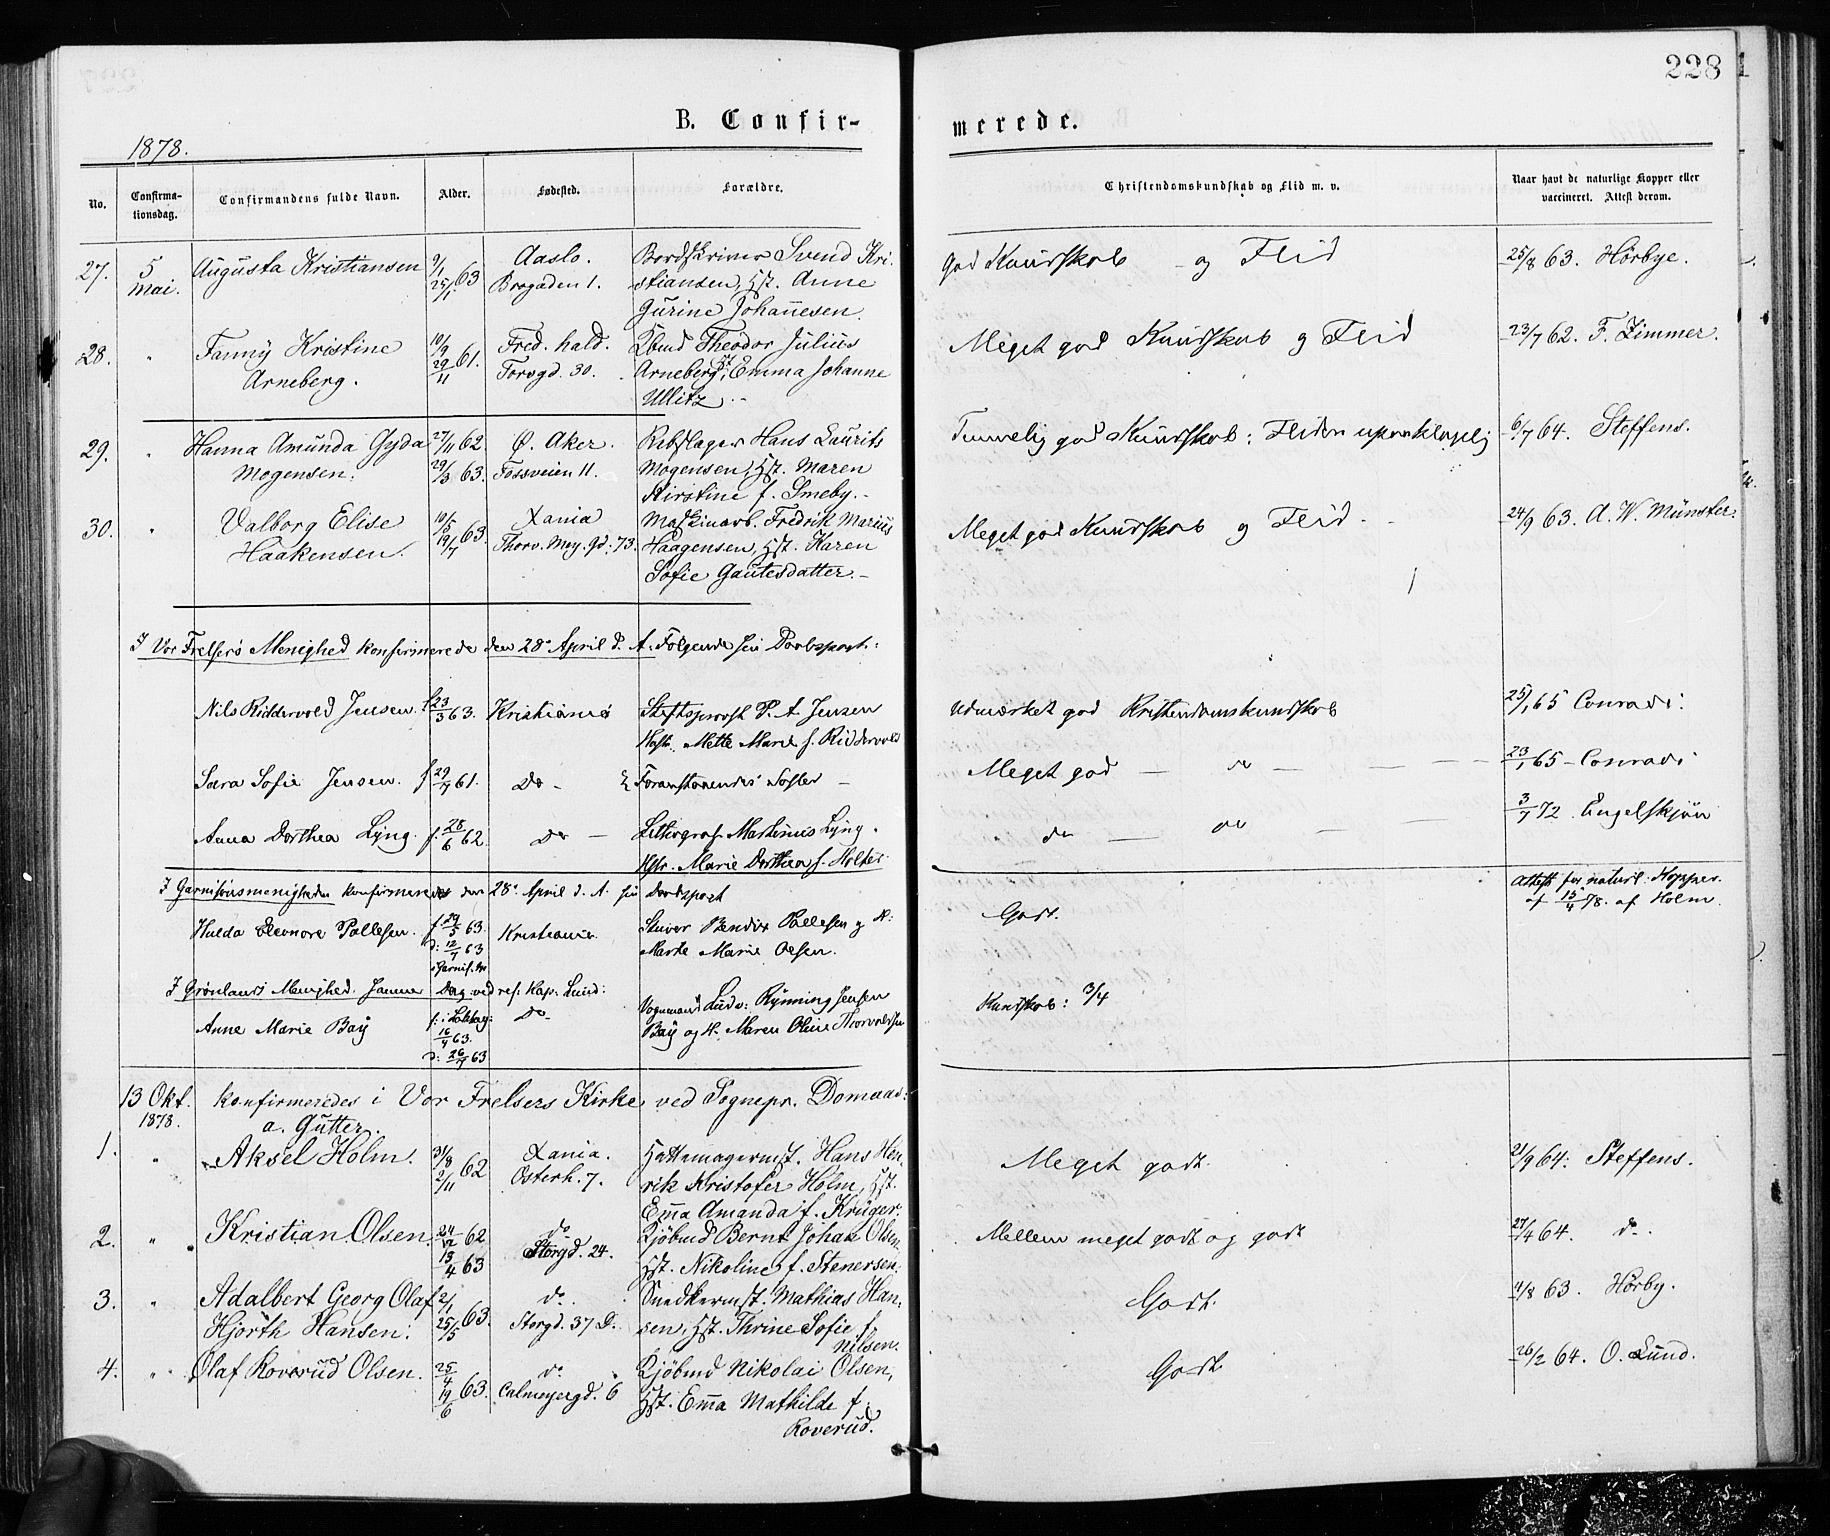 228
B. Confir- merede.
1878.
No. Confirma-tionsdag. Confirmandens fulde Navn. Alder. Fødested. Forældre. Christendomskundskab og Flid m. v. Naar havt de naturlige Kopper eller vaccineret. Attest derom.
27. 5 Mai. Augusta Kristiansen 9/1 25/1 63 Aaslo. Brogaden 1. Bordskriver Svend Kri-
stiansen, Hst. Anne
Gurine Johannesen. God Kundskab og Flid 25/8 63. Hörbye.
28. " Fanny Kristine
Arneberg. 10/9 29/11 61. Fred.hald. Torvgd. 30. Kbmd Theodor Julius
Arneberg, Hst. Emma Johanne
Ullitz. Meget god Kundskab og Flid 23/7 62. F. Zimmer.
29. " Hanna Amunda Gyda
Mogensen. 27/11 62 29/3 63. Ø. Aker. Fossveien 11. Rebslager Hans Laurits
Mogensen, Hst. Maren
Kirstine f. Smeby. Temmelig god Kundskab; Fliden upaaklagelig 6/7 64. Steffens.
30. " Valborg Elise
Haakensen. 10/5 19/7 63 Xania Thorv. Mey. gd: 73. Maskinarb. Fredrik Marius
Haagensen, Hst. Karen
Sofie Gautesdatter. Meget god Kundskab og Flid. 24/9 63. A. W. Münster.
I Vor Frelsers Menighed konfirmerede den 28de April d. A. Følgende
Nils Riddervold Jensen. f 23/3 63. Kristiania Stiftsprovst P. A Jensen
Mette Marie f. Riddervold Udmærket god Kristendomskundskab 25/1 65 Conradi.
Sara Sofie Jensen. f 29/4 61. Do Foranstaaendes Søster Meget god do 23/1 65 Conradi
Anna Dorthea Lyng. f. 28/6 62. Do Lithograf Martinus Lyng.
Hstr. Marie Dorthea f. Holter. do do 3/7 72 Engelskjøn
I Garnisonsmenigheden konfirmeredes den 28de April d. A.
Hulda Eleonore Pallesen. f 29/5 63. d: 12/7 63 i Garnis. Kristiania. Skriver Bendix Pallesen og H:
Marthe Marie Olsen. Godt. Attest for naturl: Kopper.
af 13/4 78. af Holm.
I Grønlands Menighed. samme Dag ved res: Kap: Lund:
Anne Marie Bay f: 16/4 63. d: 26/7 63 Do. Vognmand Ludv: Rynning Jensen
Bay og H. Maren Oline Thorvaldsen Kundskab: 3/4
13 Okt. 1878. Konfirmeredes i Vor Frelsers Kirke ved Sognepr. Domaas:
a. Gutter.
1. " Aksel Holm. 31/8 2/11 62 Xania. Osterh. 7. Hattemagermst. Hans Hen-
rik Kristofer Holm, Hst.
Emma Amanda f. Krüger. Meget godt. 21/9 64: Steffens.
2. " Kristian Olsen. 24/12 62 13/4 63 do Storgd. 24. Kjöbmd Bernt Johan Olsen
Hst. Nikoline f. Stenersen. Mellem meget godt og godt 27/4 64. do.
3. " Adalbert Georg Olaf
Hjorth Hansen. 2/1 25/5 63. do. Storgd. 37 D. Snedkermst. Mathias Han-
sen, Hst. Thrine Sofie f.
Nilsen. Godt. 4/8 63. Hørby.
4. " Olaf Koverud Olsen. 25/4 19/6 63. do Calmeyergd. 6 Kjöbmd Nikolai Olsen,
Hst. Emma Mathilde f.
Koverud. Godt 26/2 64. O. Lund.